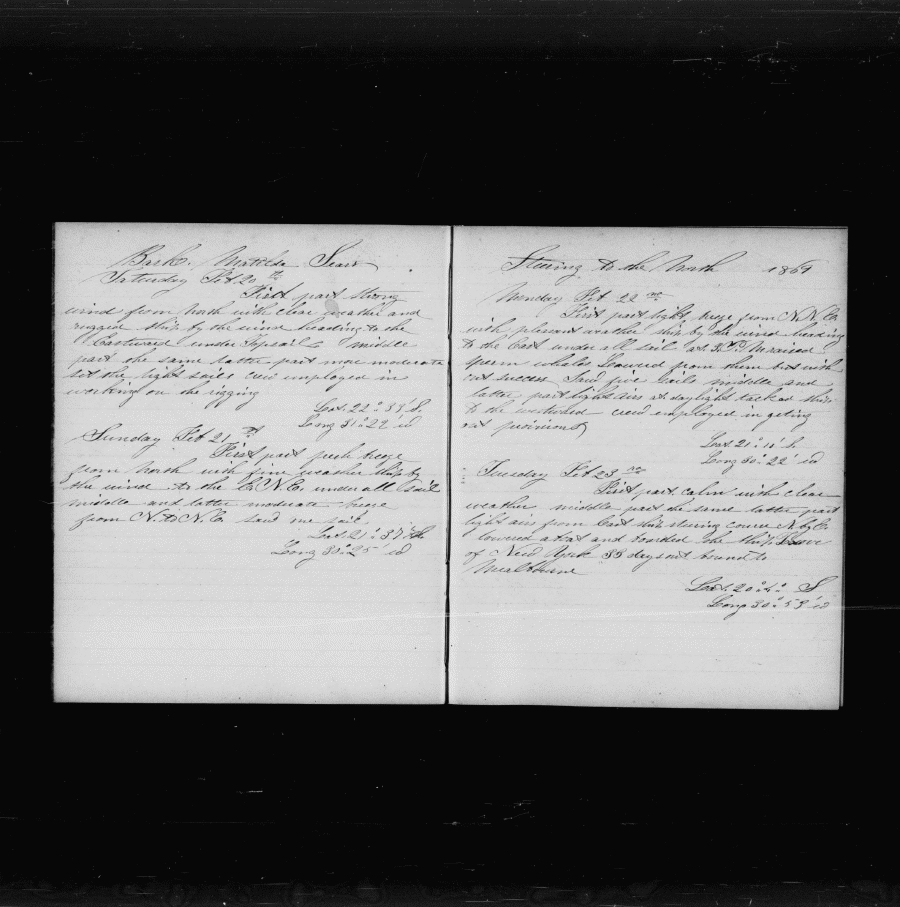 Bark. Matilda Sears
Saturday Feb 20th
First part strong
wind from North with clear weather and
rugged ship by the wind heading to the
Eastward under Topsails middle
part the same latter part more moderate
set the light sails crew employed in
working on the rigging
Lat. 22° 39' S.
Long 31° 22' W
Sunday Feb 21st
First part fresh breeze
from North with fine weather ship by
the wind to the E.N.E. under all sail
middle and latter moderate breeze
from N. to N.E. saw one sail
Lat. 21° 37'
Long 30° 25' W
Steering to the North 1869
Monday Feb 22nd
First part light breeze from N.N.E.
with pleasant weather ship by the wind heading
to the East under all sail at 3 P.M raised
sperm whales Lowered from them but with
out success Saw five sails middle and
latter part light airs at daylight tacked ship
to the westward crew employed in geting
out provisions
Lat. 21° 10' S.
Long 30° 22' W
Tuesday Feb 23rd
First part calm with clear
weather middle part the same latter part
light airs from East ship steering course N. by E.
lowered a boat and boarded the ship
of New York 33 days out bound to
Mealbourne
Lat. 20° S
Long 30° 59' W